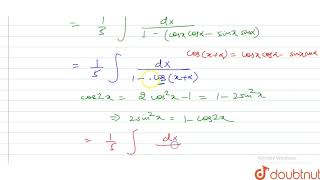 = 1/5 ∫ dx / 1 - (cosx cosα - sinx sinα)
cos(x+α) = cosx cosα - sinx sinα
= 1/5 ∫ dx / 1 - cos(x+α)
cos2x = 2cos²x - 1 = 1 - 2sin²x
⇒ 2sin²x = 1 - cos2x
= 1/5 ∫ dx
doubtnut